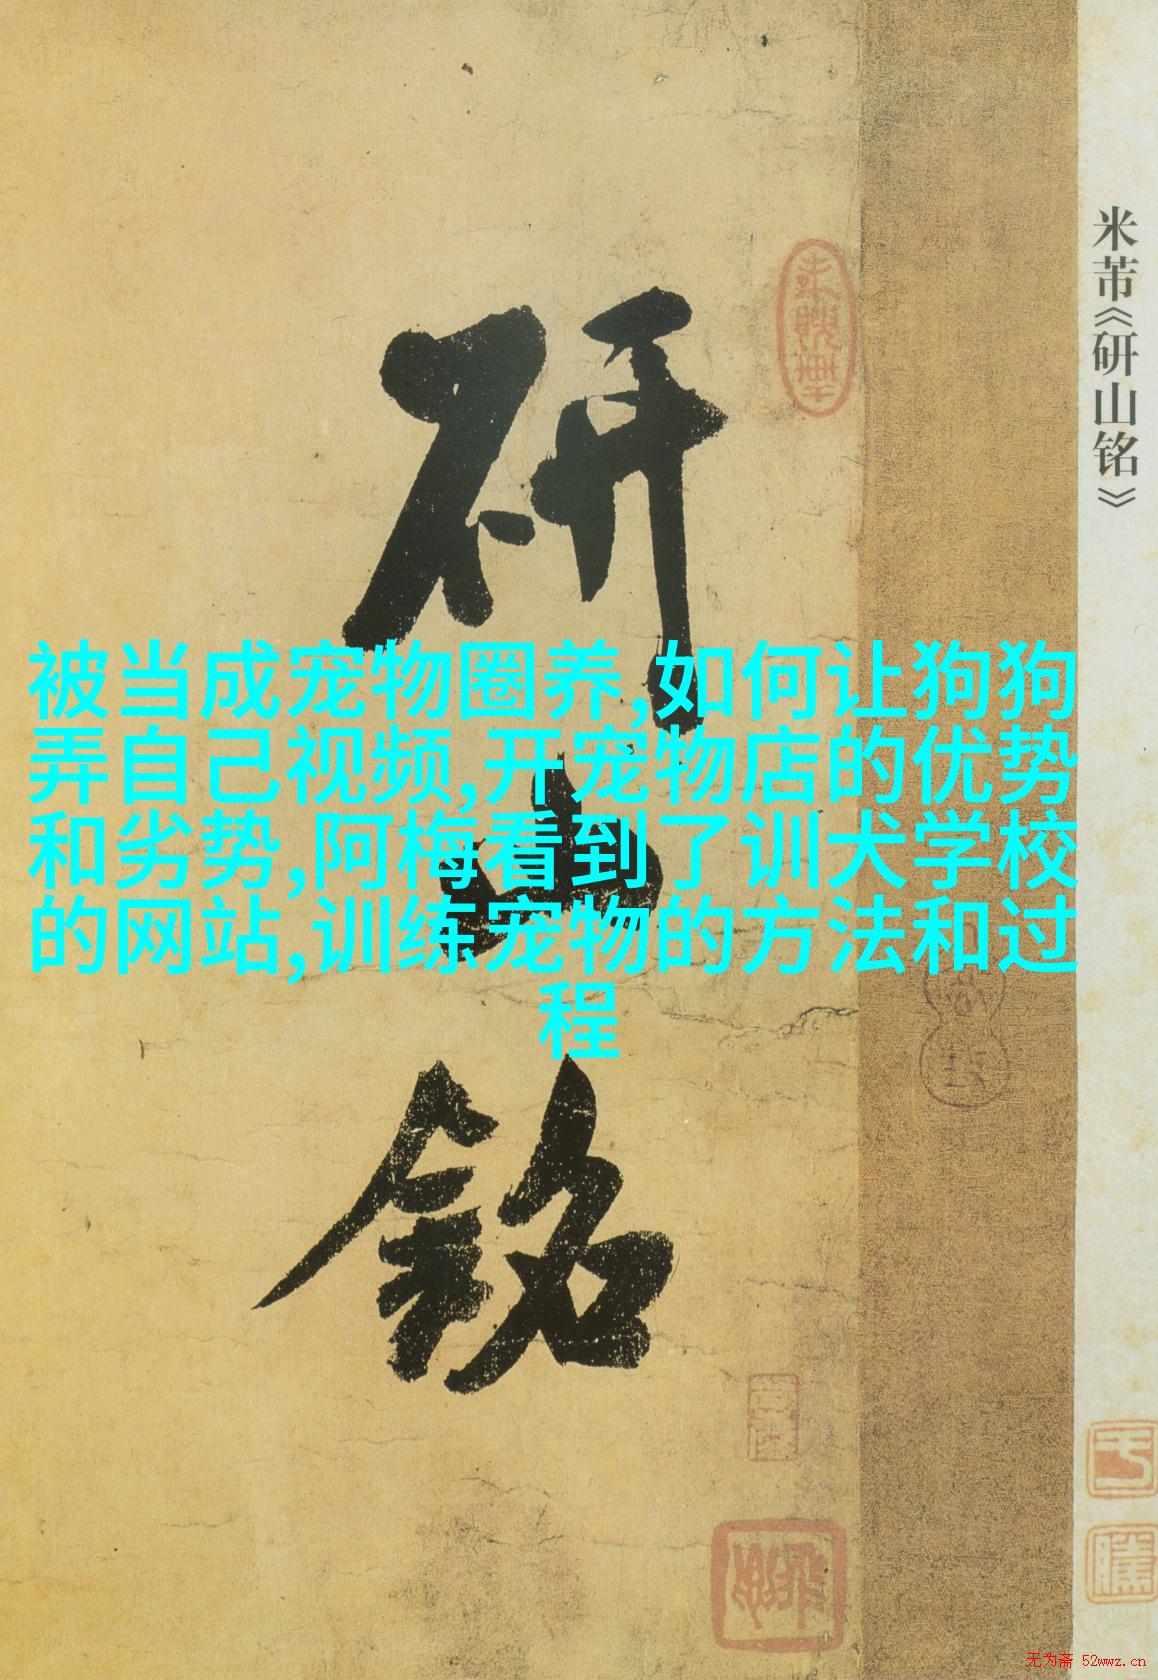 米芾《研山铭》
研山铭
被当成宠物圈养,如何让狗狗
弄自己视频,开宠物店的优势
和劣势,阿梅看到了训犬学校
的网站,训练宠物的方法和过
程
无为斋 52wwz.cn